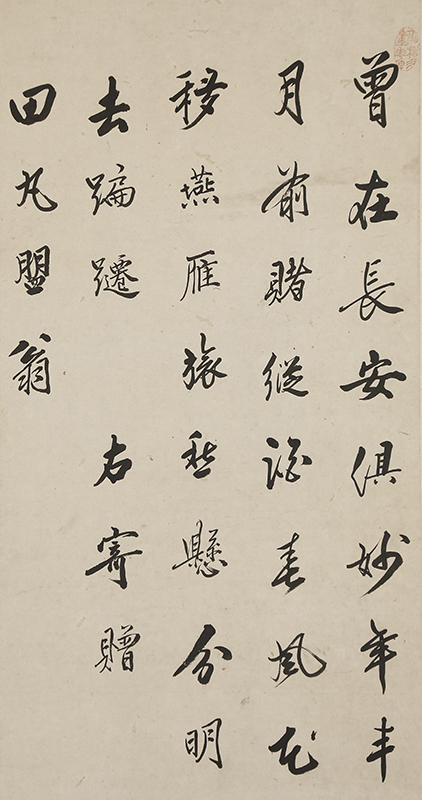 曾在長安俱妙年丰
月前賭縱春風花
移燕雁旅愁懸分明
去蹁躚 右寄贈
田丸盟翁